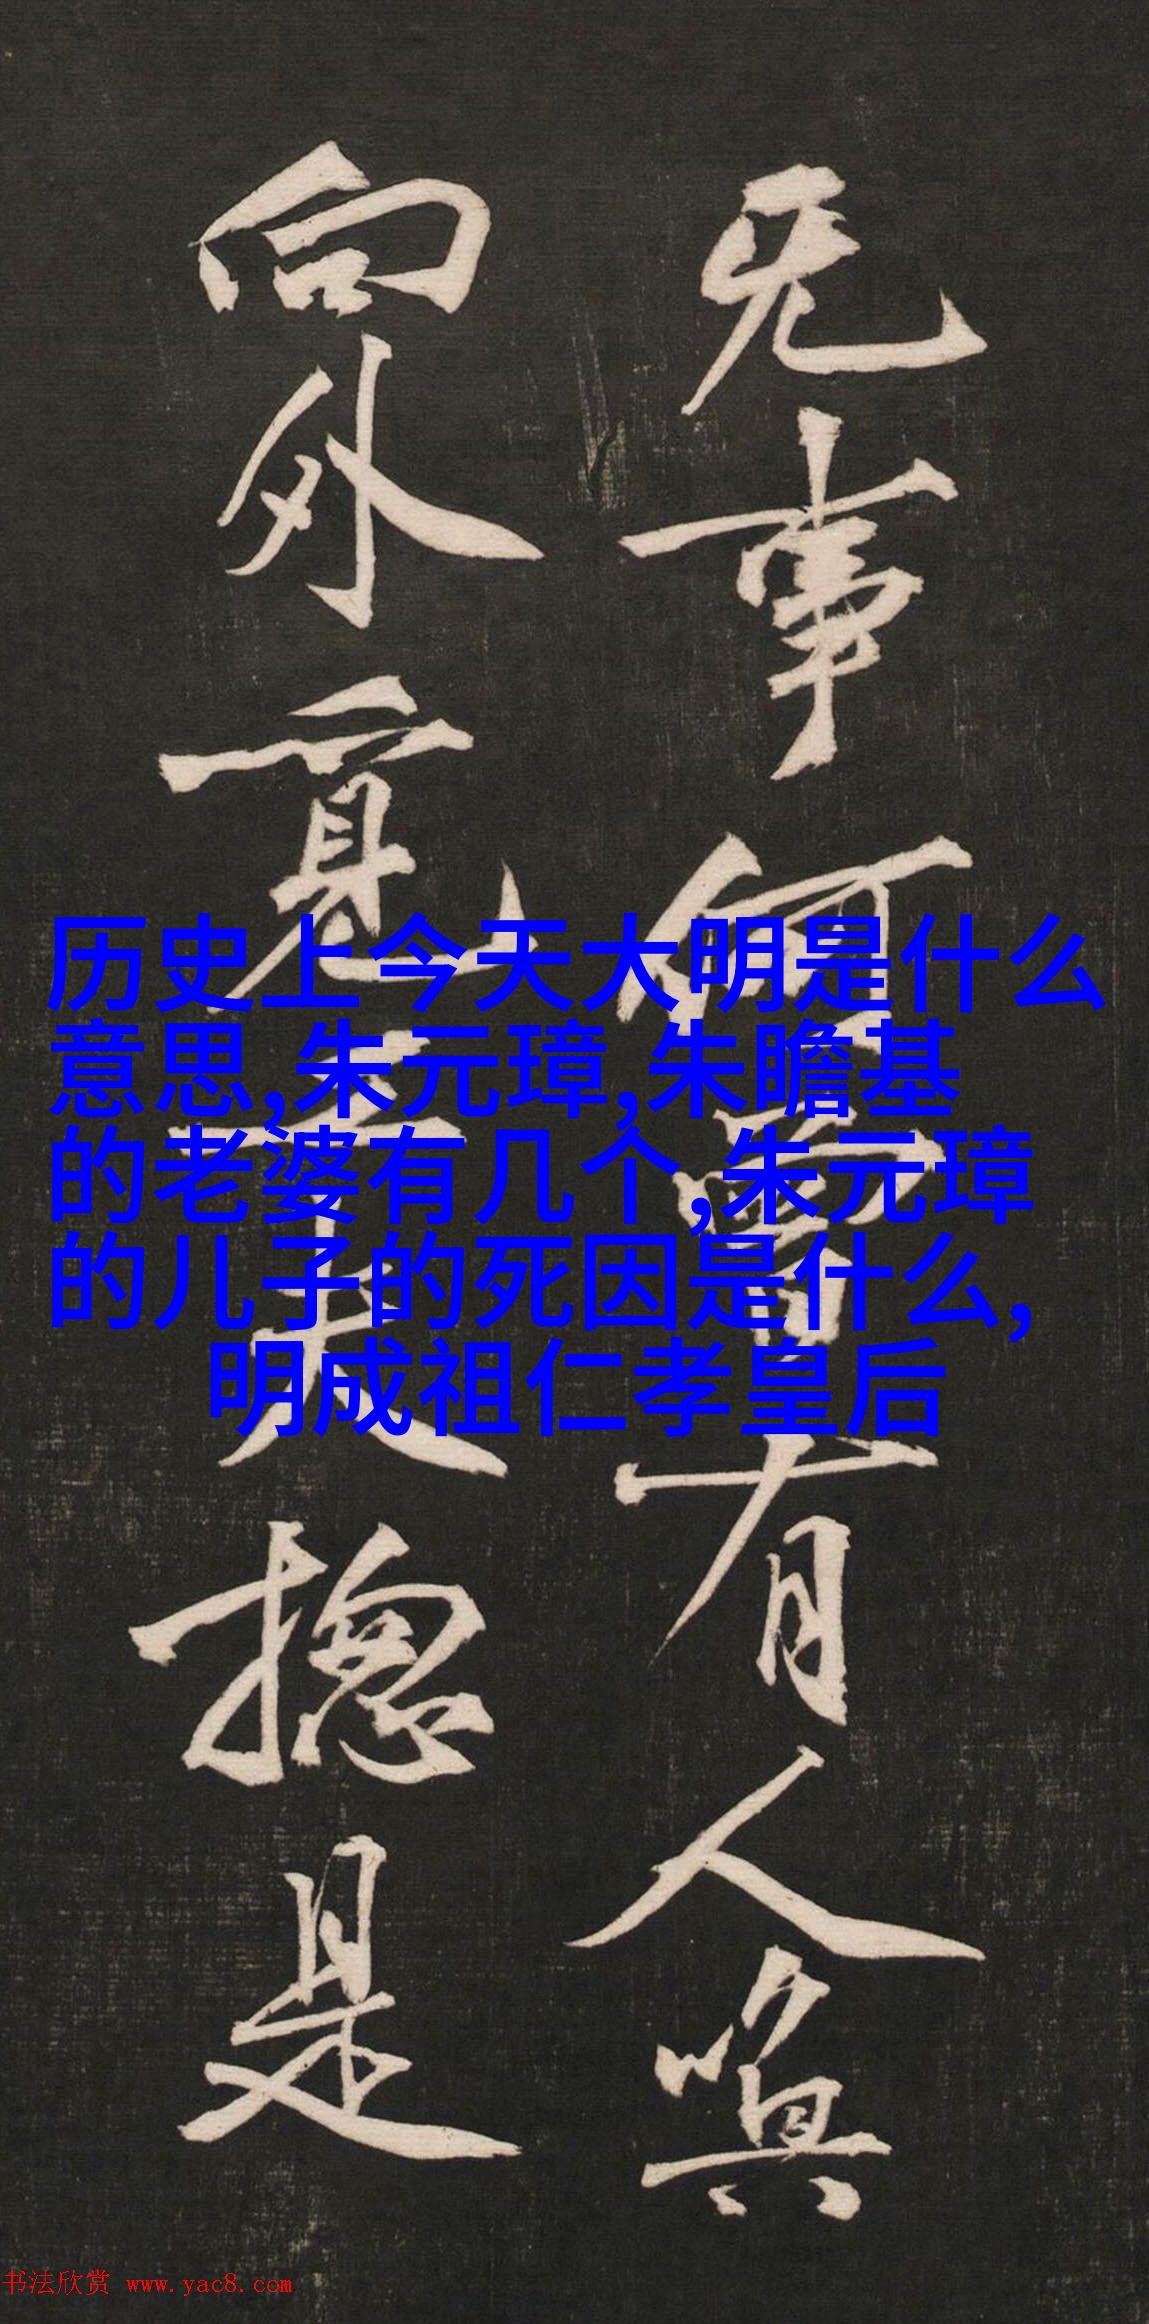 无事何曾有人喚
向外覓工夫揔是
历史上今天大明是什么
意思,朱元璋,朱瞻基
的老婆有几个,朱元璋
的儿子的死因是什么,
明成祖仁孝皇后
书法欣赏 www.yac8.com